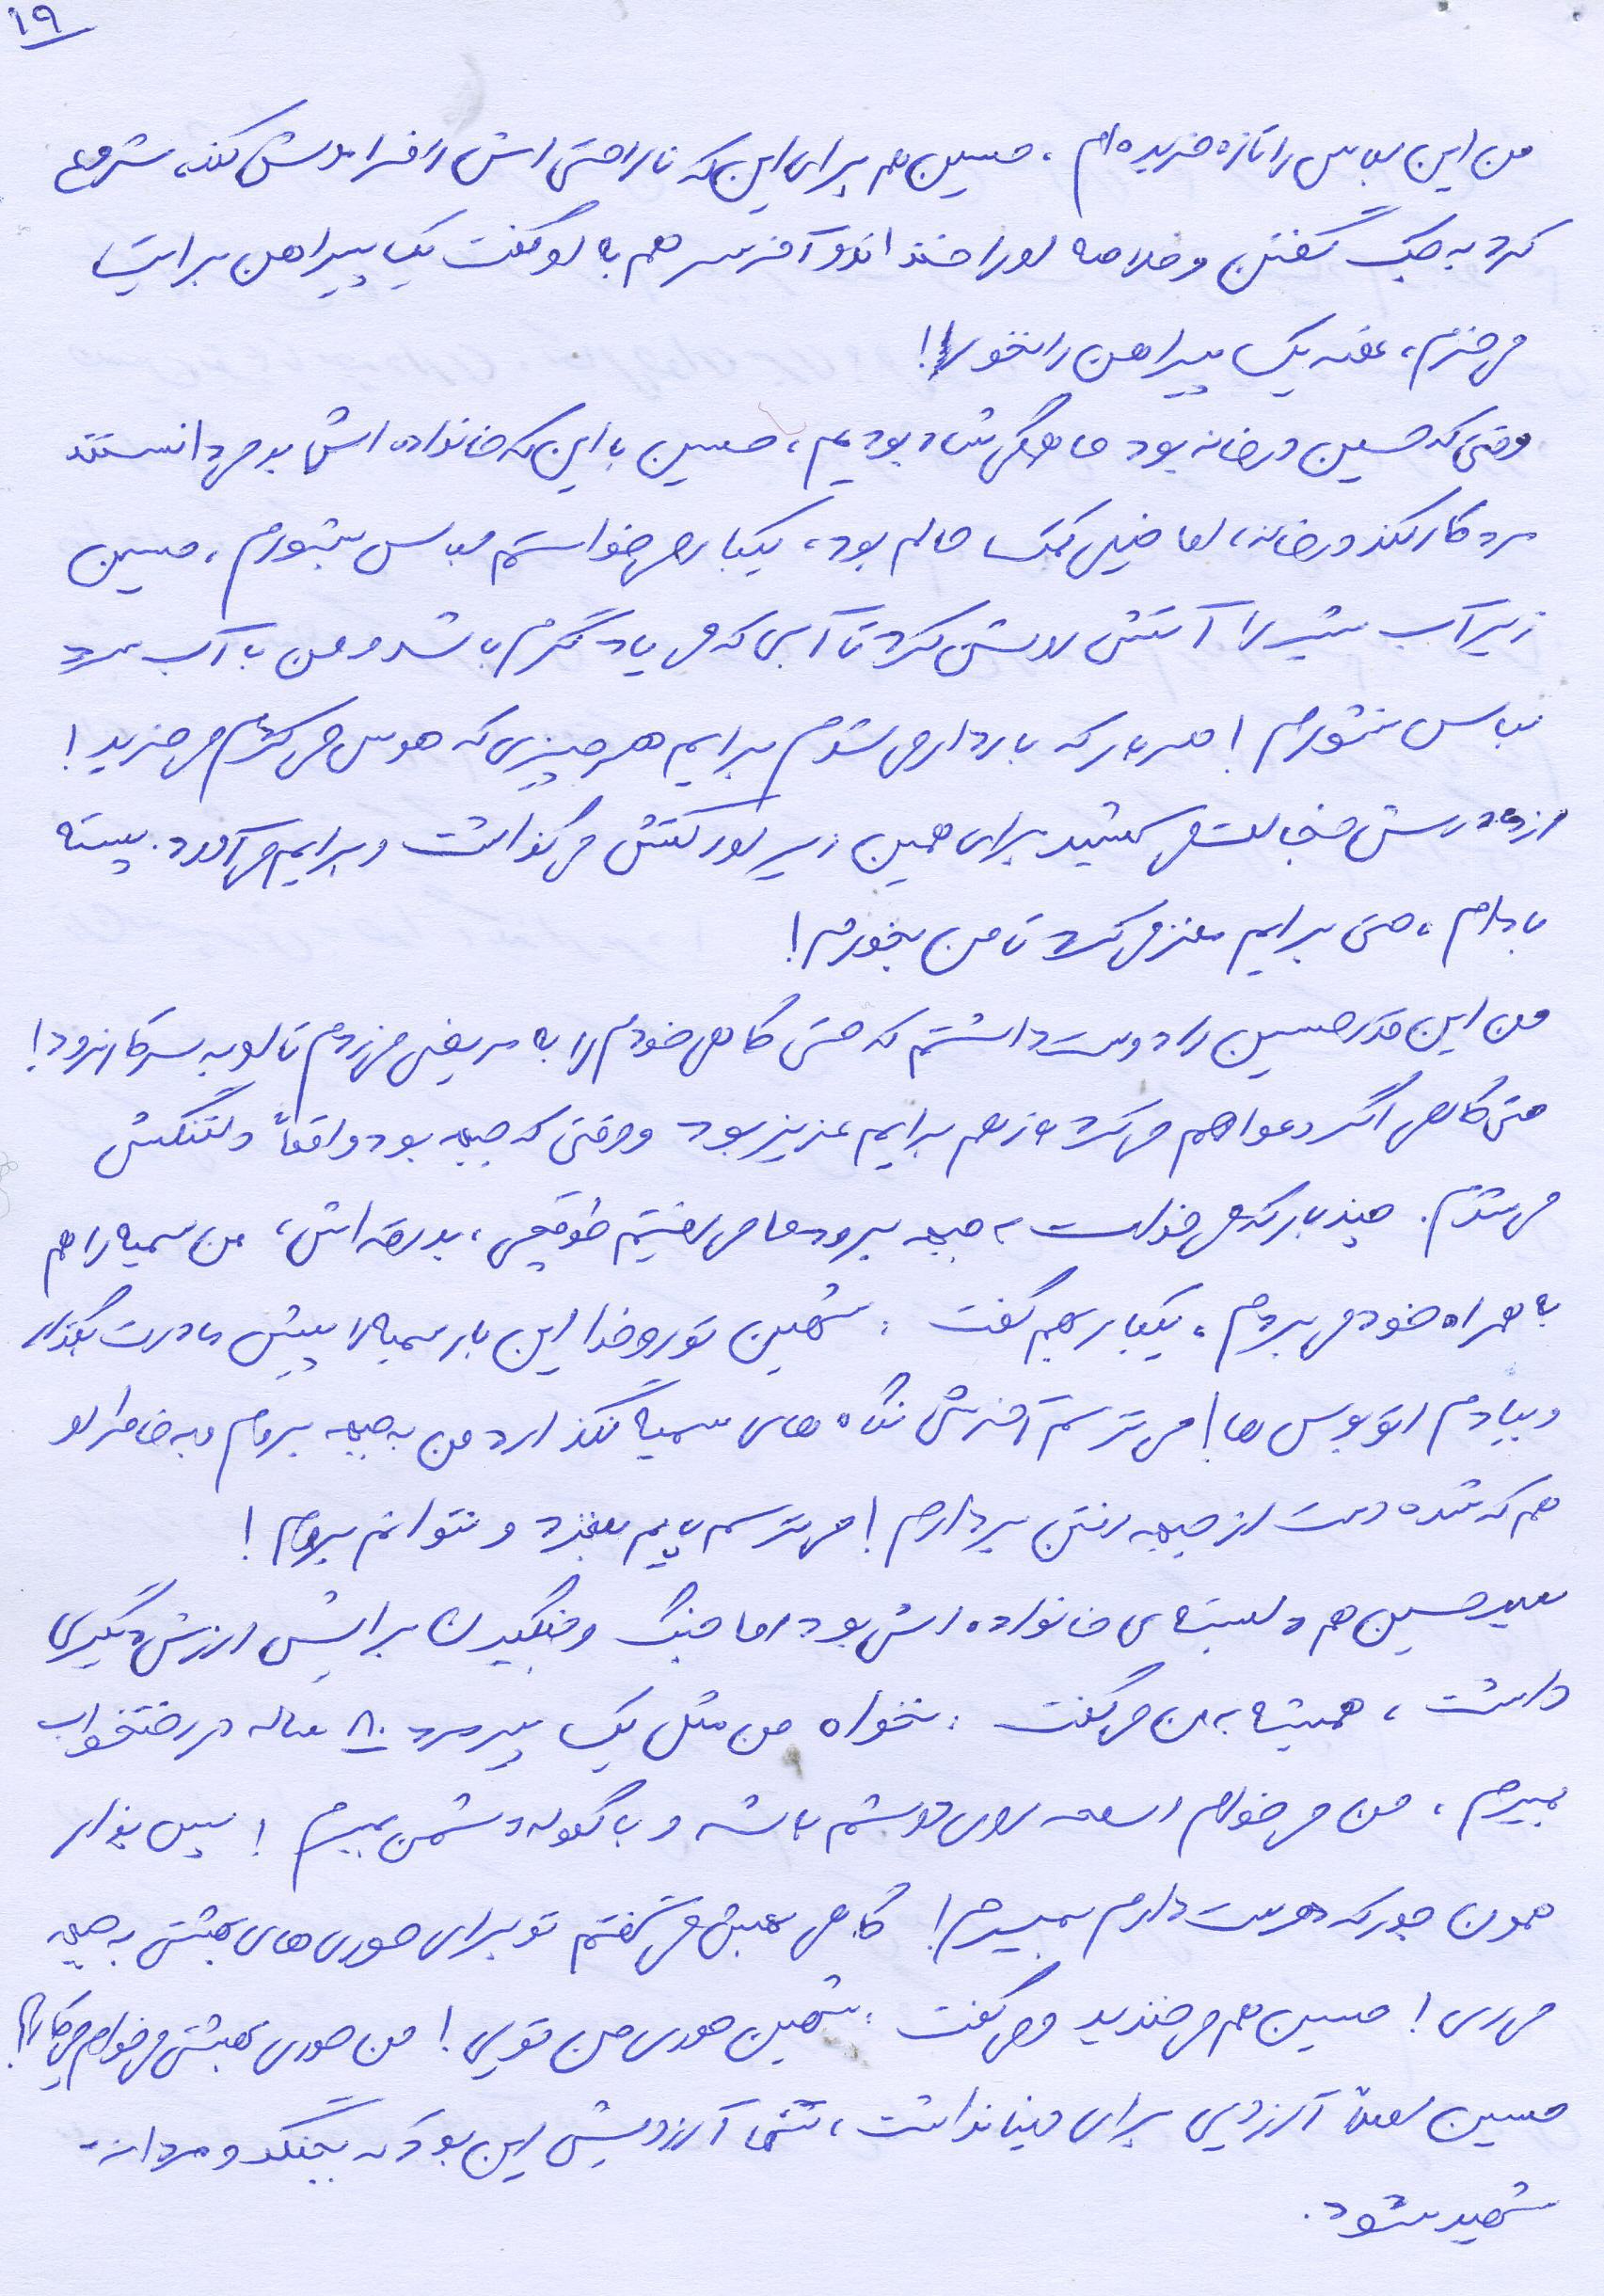 ۱۹
من این لباس را تازه خریده‌ام، حسین هم برای این که ناراحتی اش را فراموش کند، شروع
کرد به جک گفتن و خلاصه او را خنداند و آخر سر هم به او گفت یک پیراهن برایت
می خرم، غصه یک پیراهن را نخور!
وقتی که حسین در خانه بود ما همگی شاد بودیم، حسین با این که خانواده اش بد می دانستند
مرد کار کند در خانه، اما خیلی کمک حالم بود، یکبار هم خواستم لباس بشورم، حسین
زیر آب شیر را آتش روشن کرد تا آبی که می یاد گرم باشد و من با آب سرد
لباس نشورم! هر بار که باردار می شدم برایم هر چیزی که هوس می کردم می خرید!
از مادرش خجالت می کشید برای همین زیر اورکتش می گذاشت و برایم می آورد. پسته
بادام، حتی برایم مغز می کرد تا من بخورم!
من این قدر حسین را دوست داشتم که حتی گاهی خودم را به مریضی می زدم تا او به سر کار نرود!
حتی گاهی اگر دعوا هم می کرد باز هم برایم عزیز بود و وقتی که جبهه بود واقعاً دلتنگش
می شدم. چند بار که می خواست به جبهه برود ما می رفتیم بدرقه اش، من سمیه را هم
به همراه خود می بردم، یکبار بهم گفت: شهین تورو خدا این بار سمیه را پیش مادرت بگذار
و بیا دم اتوبوس ها! می ترسم آخرش نگاه های سمیه نگذارد من به جبهه بروم و به خاطر او
هم که شده دست از جبهه رفتن بردارم! می ترسم پایم بلغزد و نتوانم بروم!
سید حسین هم دلبسته ی خانواده اش بود اما جنگ و جنگیدن برایش ارزش دیگری
داشت، همیشه به من می گفت: نخواه من مثل یک پیرمرد ۸۰ ساله در رختخواب
بمیرم، من می خوام اسلحه روی دوشم باشه و با گلوله دشمن بمیرم! پس بذار
همون جور که دوست دارم بمیرم! گاهی بهش می گفتم تو برای حوری های بهشتی به جبهه
می ری! حسین هم می خندید و می گفت: شهین حوری من تویی! من حوری بهشتی می خوام چی کار؟!
حسین اصلاً آرزویی برای دنیا نداشت، تنها آرزویش این بود که بجنگد و مردانه
شهید شود.